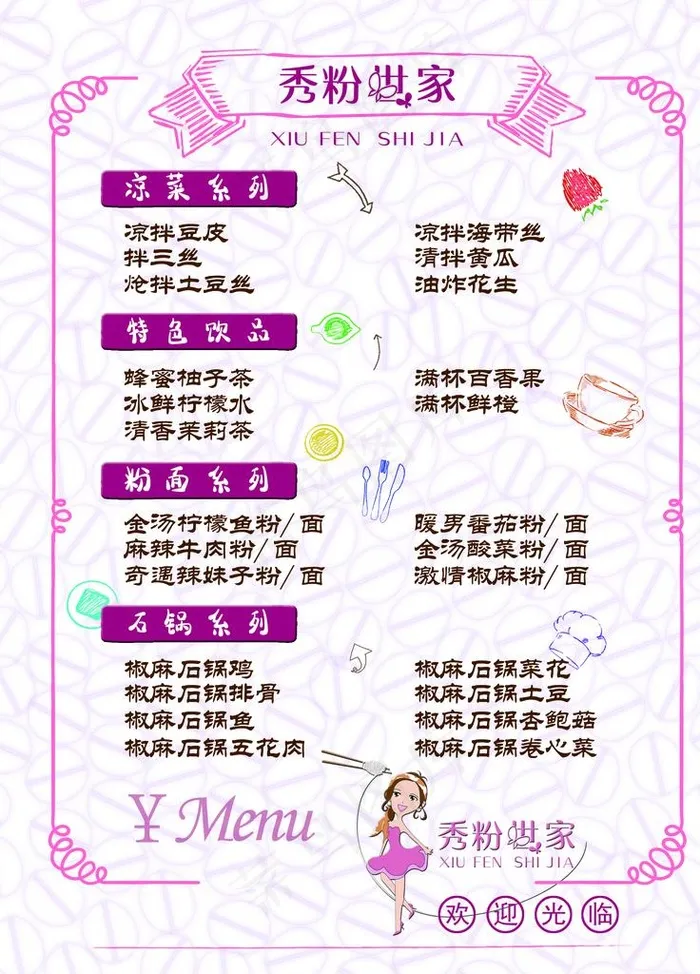 秀粉世家
XIU FEN SHI JIA
凉菜系列
凉拌豆皮 凉拌海带丝
拌三丝 清拌黄瓜
炝拌土豆丝 油炸花生
特色饮品
蜂蜜柚子茶 满杯百香果
冰鲜柠檬水 满杯鲜橙
清香茉莉茶
粉面系列
金汤柠檬鱼粉/面 暖男番茄粉/面
麻辣牛肉粉/面 金汤酸菜粉/面
奇遇辣妹子粉/面 激情椒麻粉/面
石锅系列
椒麻石锅鸡 椒麻石锅菜花
椒麻石锅排骨 椒麻石锅土豆
椒麻石锅鱼 椒麻石锅杏鲍菇
椒麻石锅五花肉 椒麻石锅卷心菜
¥ Menu
秀粉世家
XIU FEN SHI JIA
欢迎光临